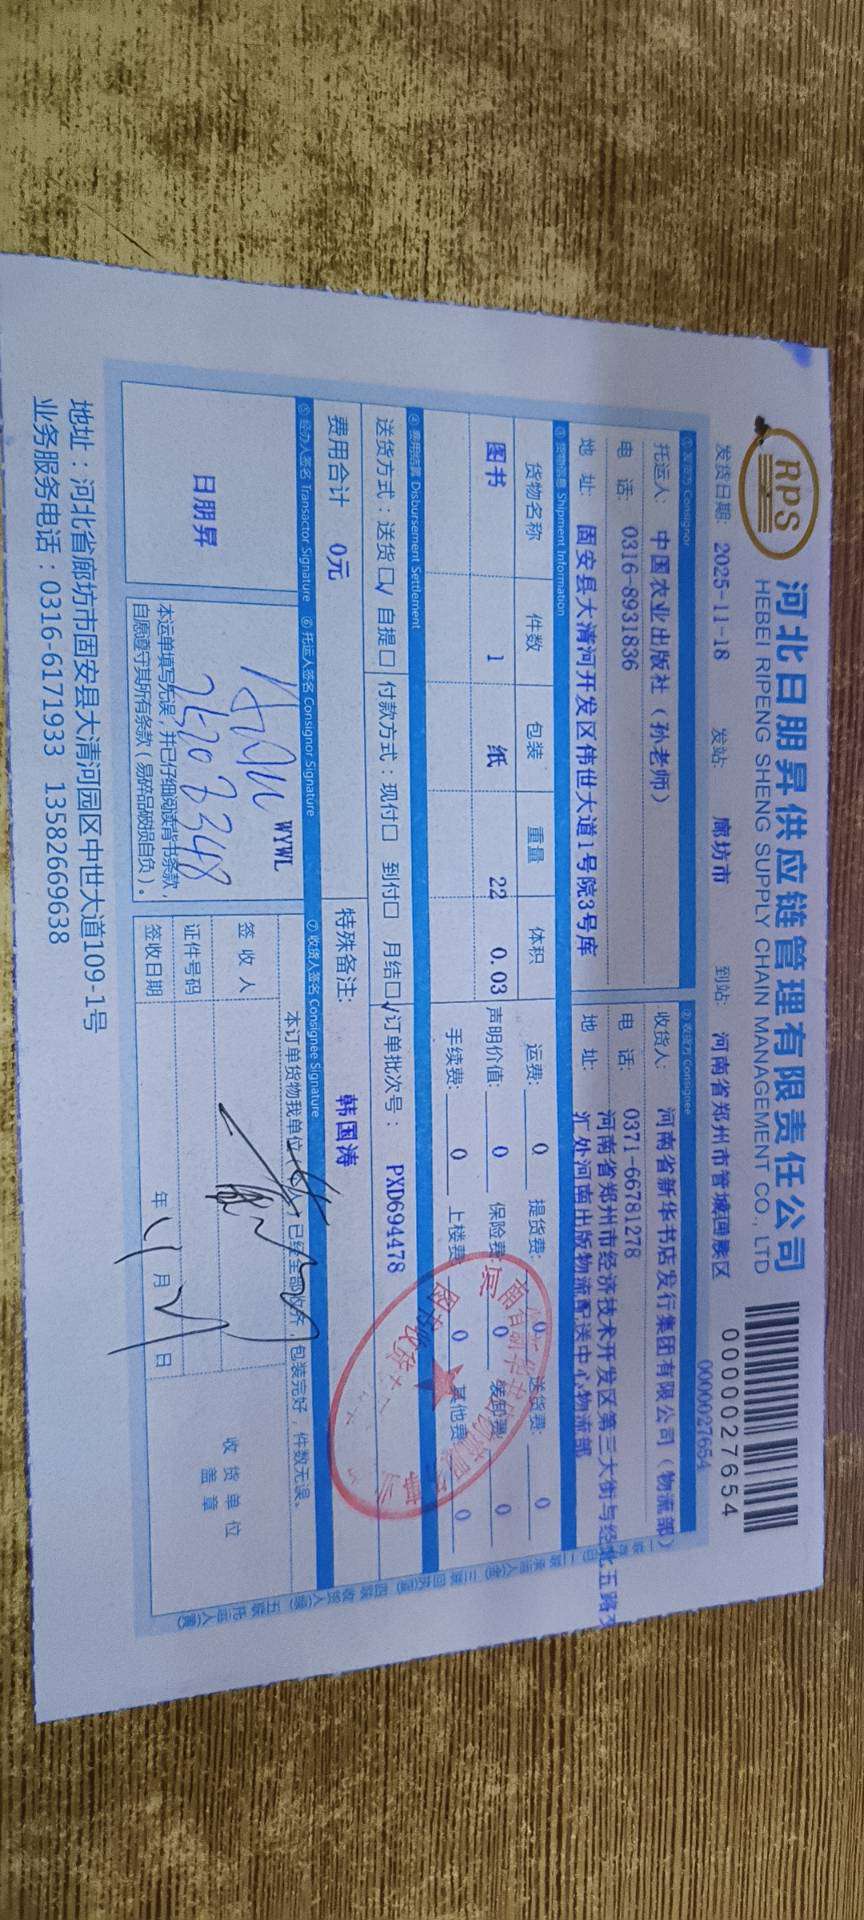 RPS
河北日朋昇供应链管理有限责任公司
HEBEI RIPENG SHENG SUPPLY CHAIN MANAGEMENT CO., LTD
0000027654
0000027654
发货日期: 2025-11-18 发站: 廊坊市 到站: 河南省郑州市管城回族区
① 发货方 Consignor ② 收货方 Consignee
托运人: 中国农业出版社（孙老师） 收货人: 河南省新华书店发行集团有限公司（物流部）
电 话: 0316-8931836 电 话: 0371-66781278
地 址: 固安县大清河开发区伟世大道1号院3号库 地 址: 河南省郑州市经济技术开发区第三大街与经北五路交
汇处河南出版物流配送中心物流部
③ 货物信息 Shipment Information
货物名称 件数 包装 重量 体积 运费: 0 提货费: 0 送货费: 0
图书 1 纸 22 0.03 声明价值: 0 保险费: 0 装卸费: 0
手续费: 0 上楼费: 0 其他费: 0
④ 费用结算 Disbursement Settlement
送货方式：送货□√ 自提□ 付款方式：现付□ 到付□ 月结□√ 订单批次号： PXD694478
费用合计 0元 特殊备注: 韩国涛
⑤ 经办人签名 Transactor Signature ⑥ 托运人签名 Consignor Signature ⑦ 收货人签名 Consignee Signature
日朋昇
WYWL
本运单填写无误，并已仔细阅读背书条款，
自愿遵守其所有条款（易碎品破损自负）。
本订单货物我单位（人）已经全部收齐，包装完好，件数无误。
签 收 人
证件号码
签收日期 年 月 日
收 货 单 位
盖 章
地址：河北省廊坊市固安县大清河园区中世大道109-1号
业务服务电话：0316-6171933 13582669638